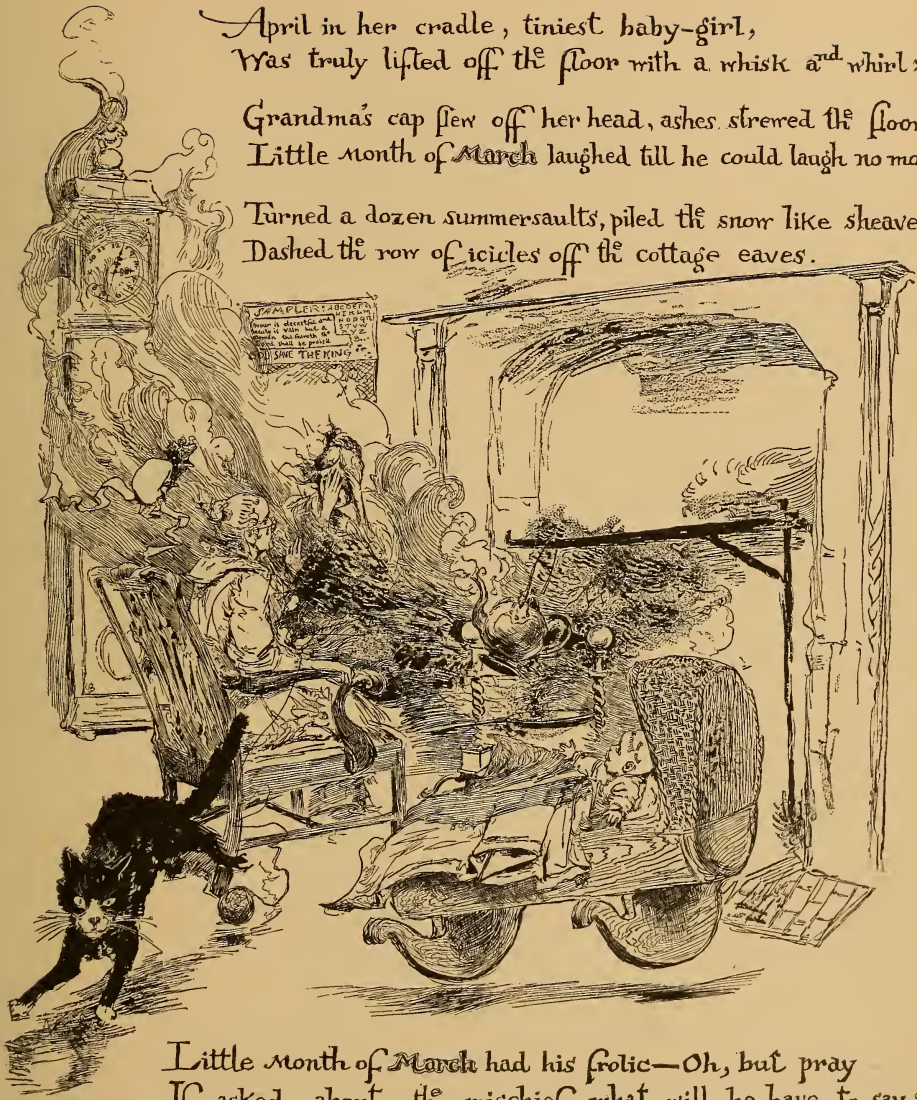 April in her cradle, tiniest baby-girl,
Was truly lifted off the floor with a whisk and whirl:
Grandma's cap flew off her head, ashes strewed the floor
Little Month of March laughed till he could laugh no mo
Turned a dozen summersaults, piled the snow like sheave
Dashed the row of icicles off the cottage eaves.
SAMPLER
favour is deceitful and
beauty is vain but a
woman that feareth the
Lord shall be praised
GOD SAVE THE KING
Little Month of March had his frolic—Oh, but pray
If asked about the mischief what will he have to say